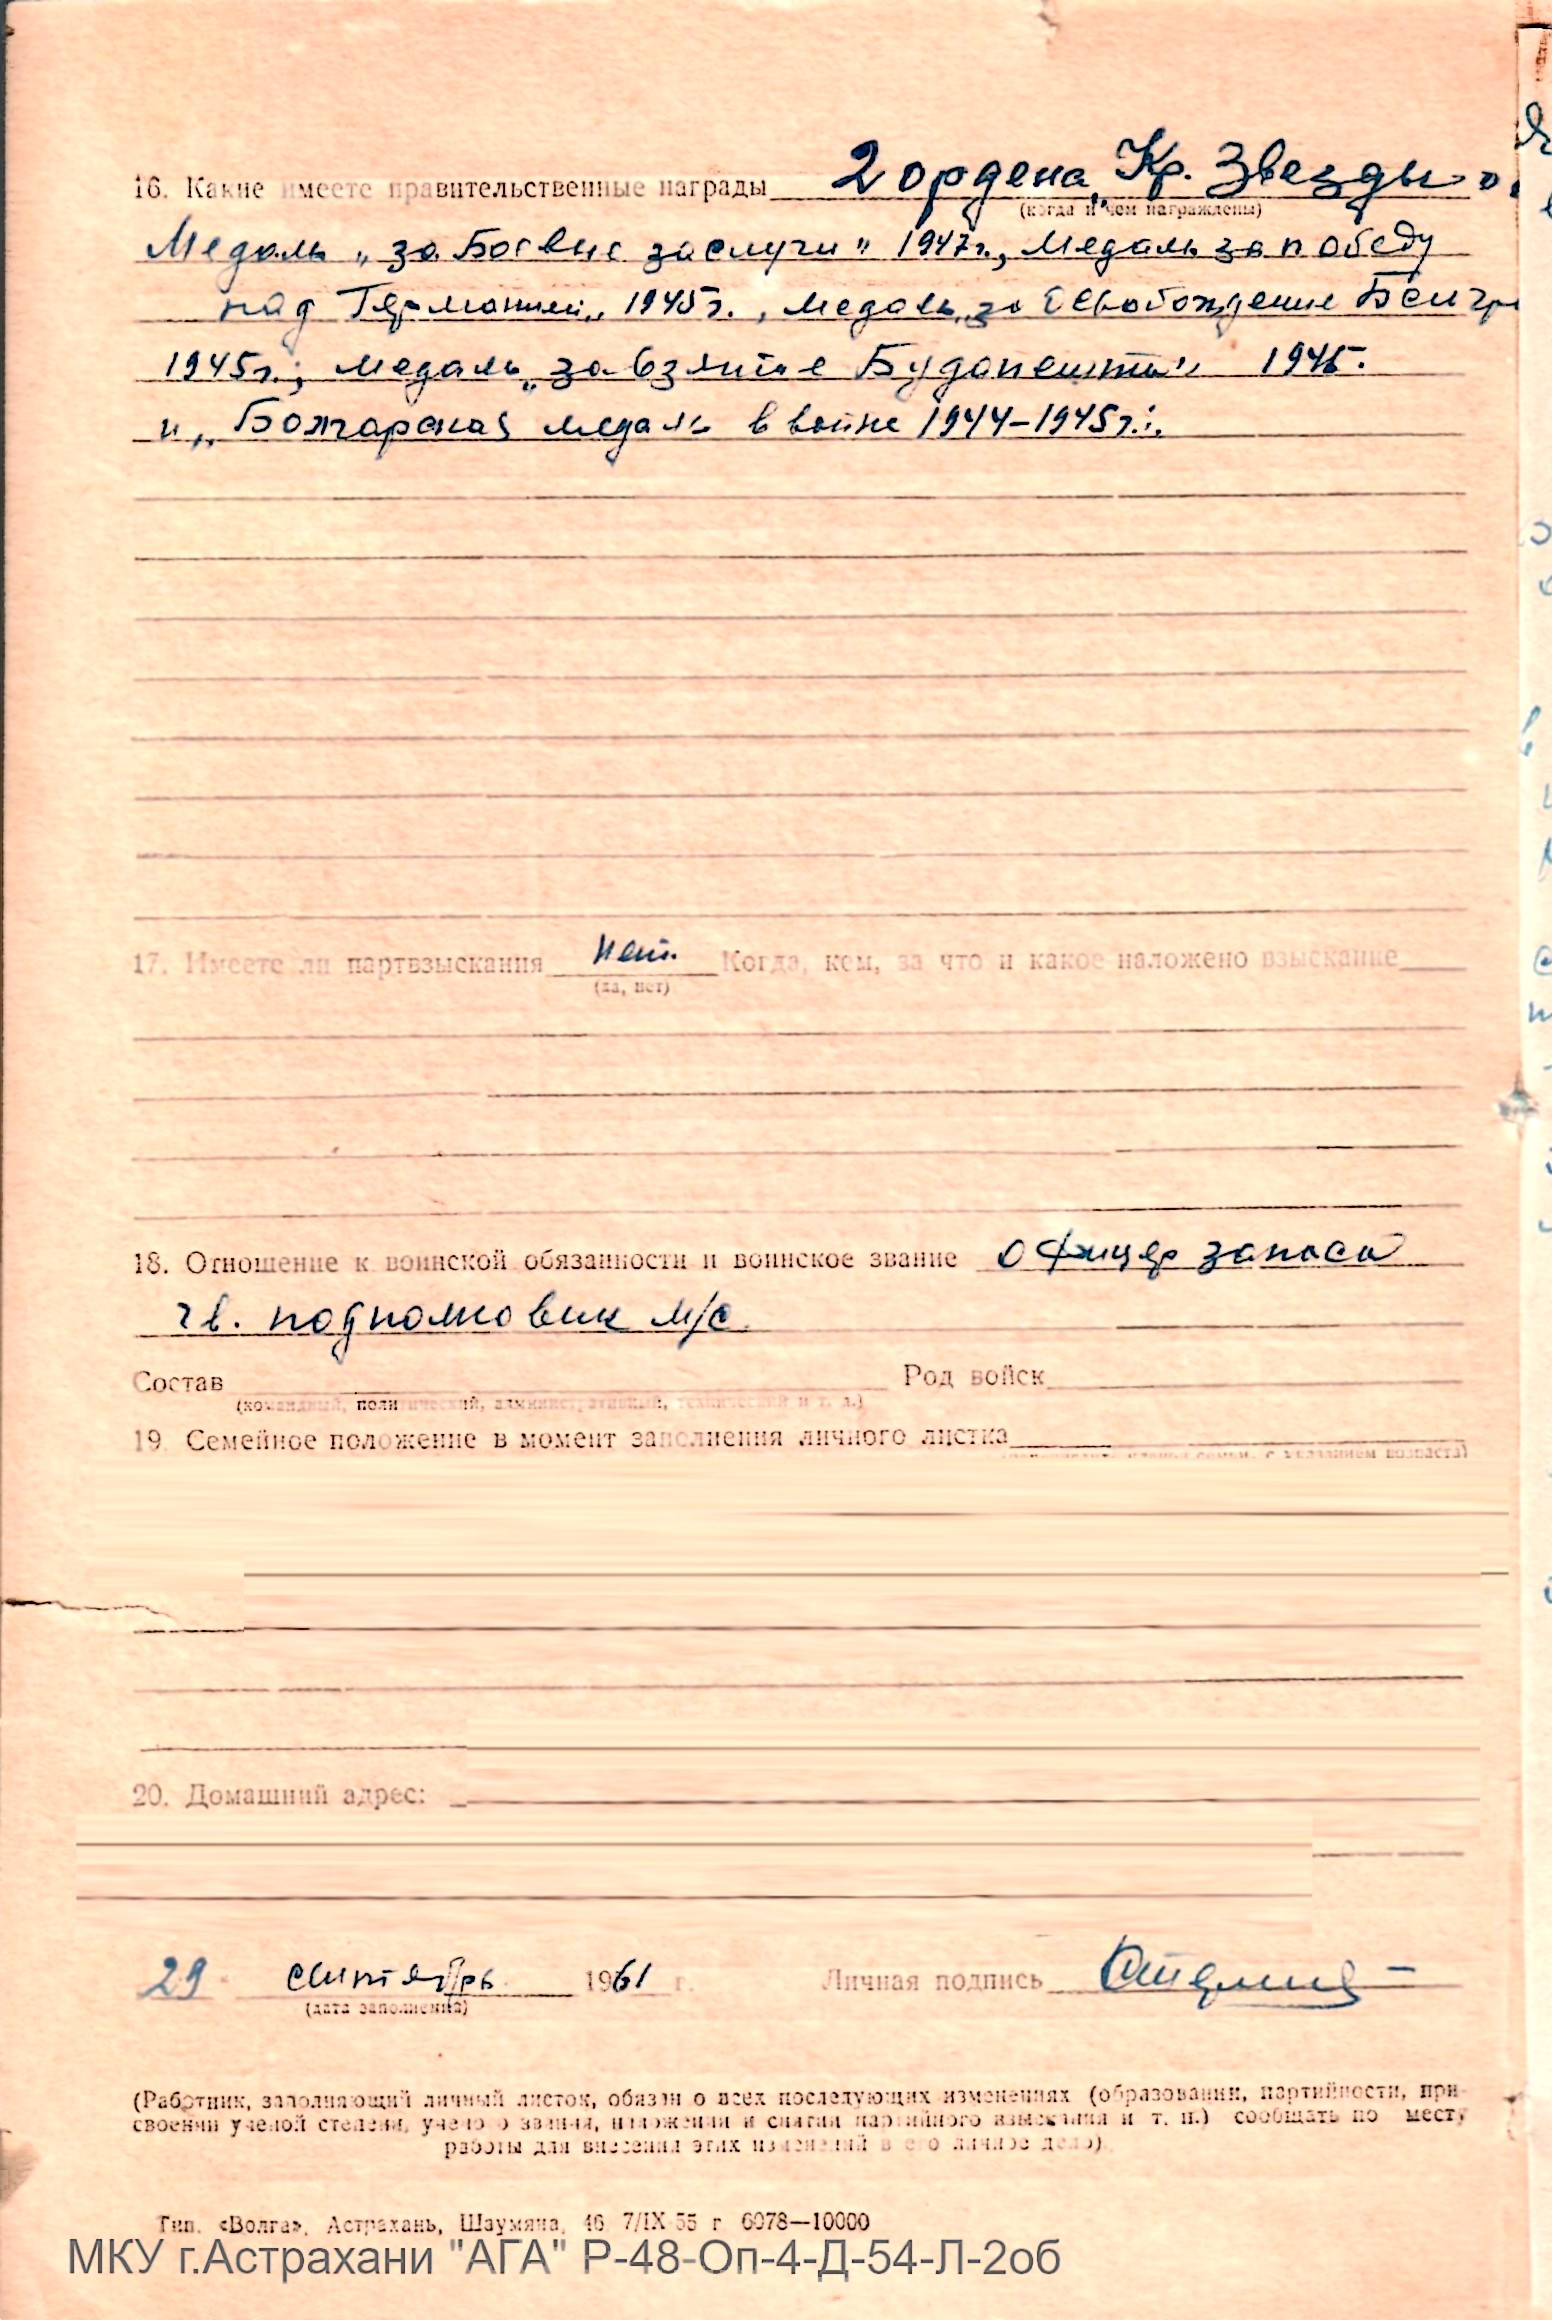 16. Какие имеете правительственные награды 2 ордена „Кр. Звезды"
(когда и чем награждены)
Медаль „за Боевые заслуги" 1947г., Медаль за победу
над Германией„ 1945г., медаль „за Освобождение Белгр
1945г.; медаль „за взятие Будапешта" 1945.
и „Болгарская медаль в войне 1944-1945г.".
17. Имеете ли партвзыскания нет. Когда, кем, за что и какое наложено взыскание
(да, нет)
18. Отношение к воинской обязанности и воинское звание офицер запаса
гв. подполковник м/с.
Состав Род войск
(командный, политический, административный, технический и т. д.)
19. Семейное положение в момент заполнения личного листка
(перечислить членов семьи, с указанием возраста)
20. Домашний адрес:
29 сентябрь 1961 г. Личная подпись
(дата заполнения)
(Работник, заполняющий личный листок, обязан о всех последующих изменениях (образовании, партийности, при-
своении ученой степени, ученого звания, наложении и снятии партийного взыскания и т. п.) сообщать по месту
работы для внесения этих изменений в его личное дело).
Тип. «Волга», Астрахань, Шаумяна, 46 7/IX-55 г 6078—10000
МКУ г.Астрахани "АГА" Р-48-Оп-4-Д-54-Л-2об